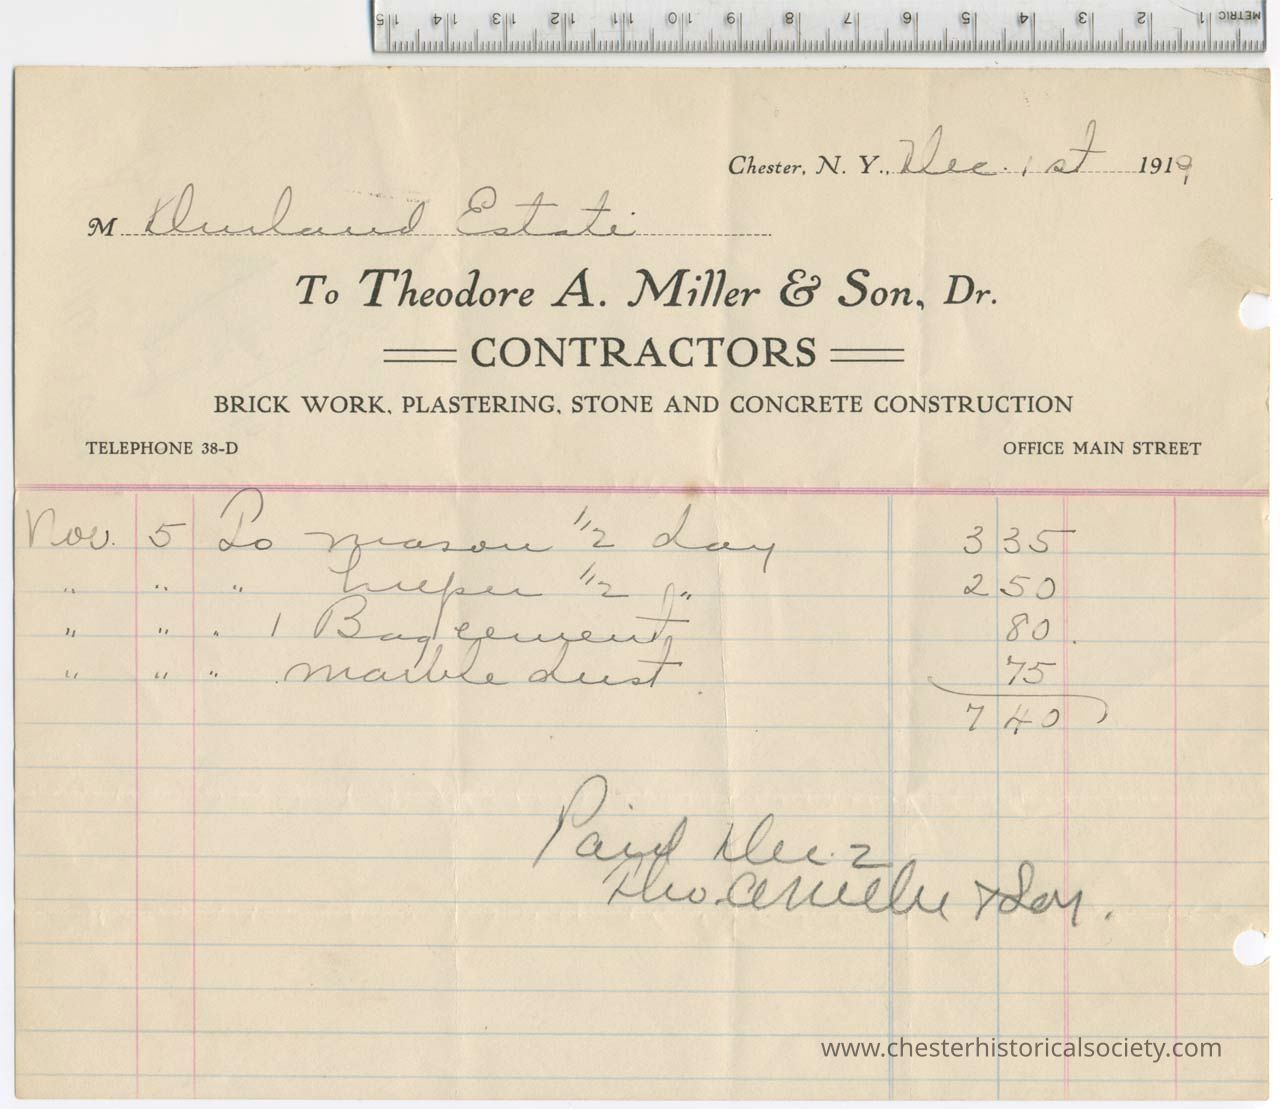 METRIC 1 2 3 4 5 6 7 8 9 10 11 12 13 14 15
Chester, N. Y., Dec. 1st 1919
M Durland Estate
To Theodore A. Miller & Son, Dr.
CONTRACTORS
BRICK WORK, PLASTERING, STONE AND CONCRETE CONSTRUCTION
TELEPHONE 38-D OFFICE MAIN STREET
Nov. 5 To mason 1/2 day 3 35
" " " helper 1/2 " 2 50
" " " 1 Bag cement 80
" " " marble dust 75
7 40
Paid Dec. 2
Theo. A Miller & Son.
www.chesterhistoricalsociety.com